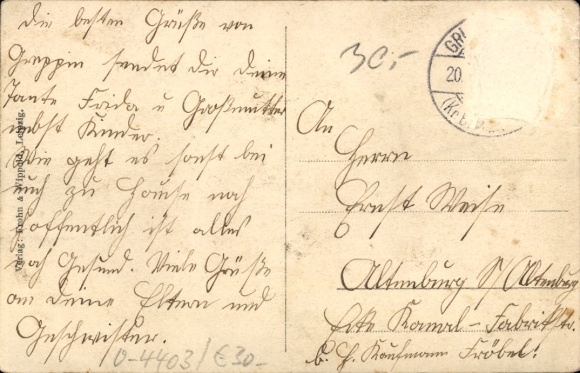 Die besten Grüße von
Greppin sendet dir deine
Tante Frida u Großmutter
nebst Kinder.
Wie geht es sonst bei
euch zu Hause noch
hoffentlich ist alles
noch Gesund. Viele Grüße
an deine Eltern und
Geschwister.
0-4403/€30-
Verlag: & Wippold, Leipzig.
30.-
GR
20.
(Kr. B
An
Herrn
Ernst Weise
Altenburg S/Altenburg
Ecke Kanal-Fabrikstr.
b. H. Kaufmann Fröbel.